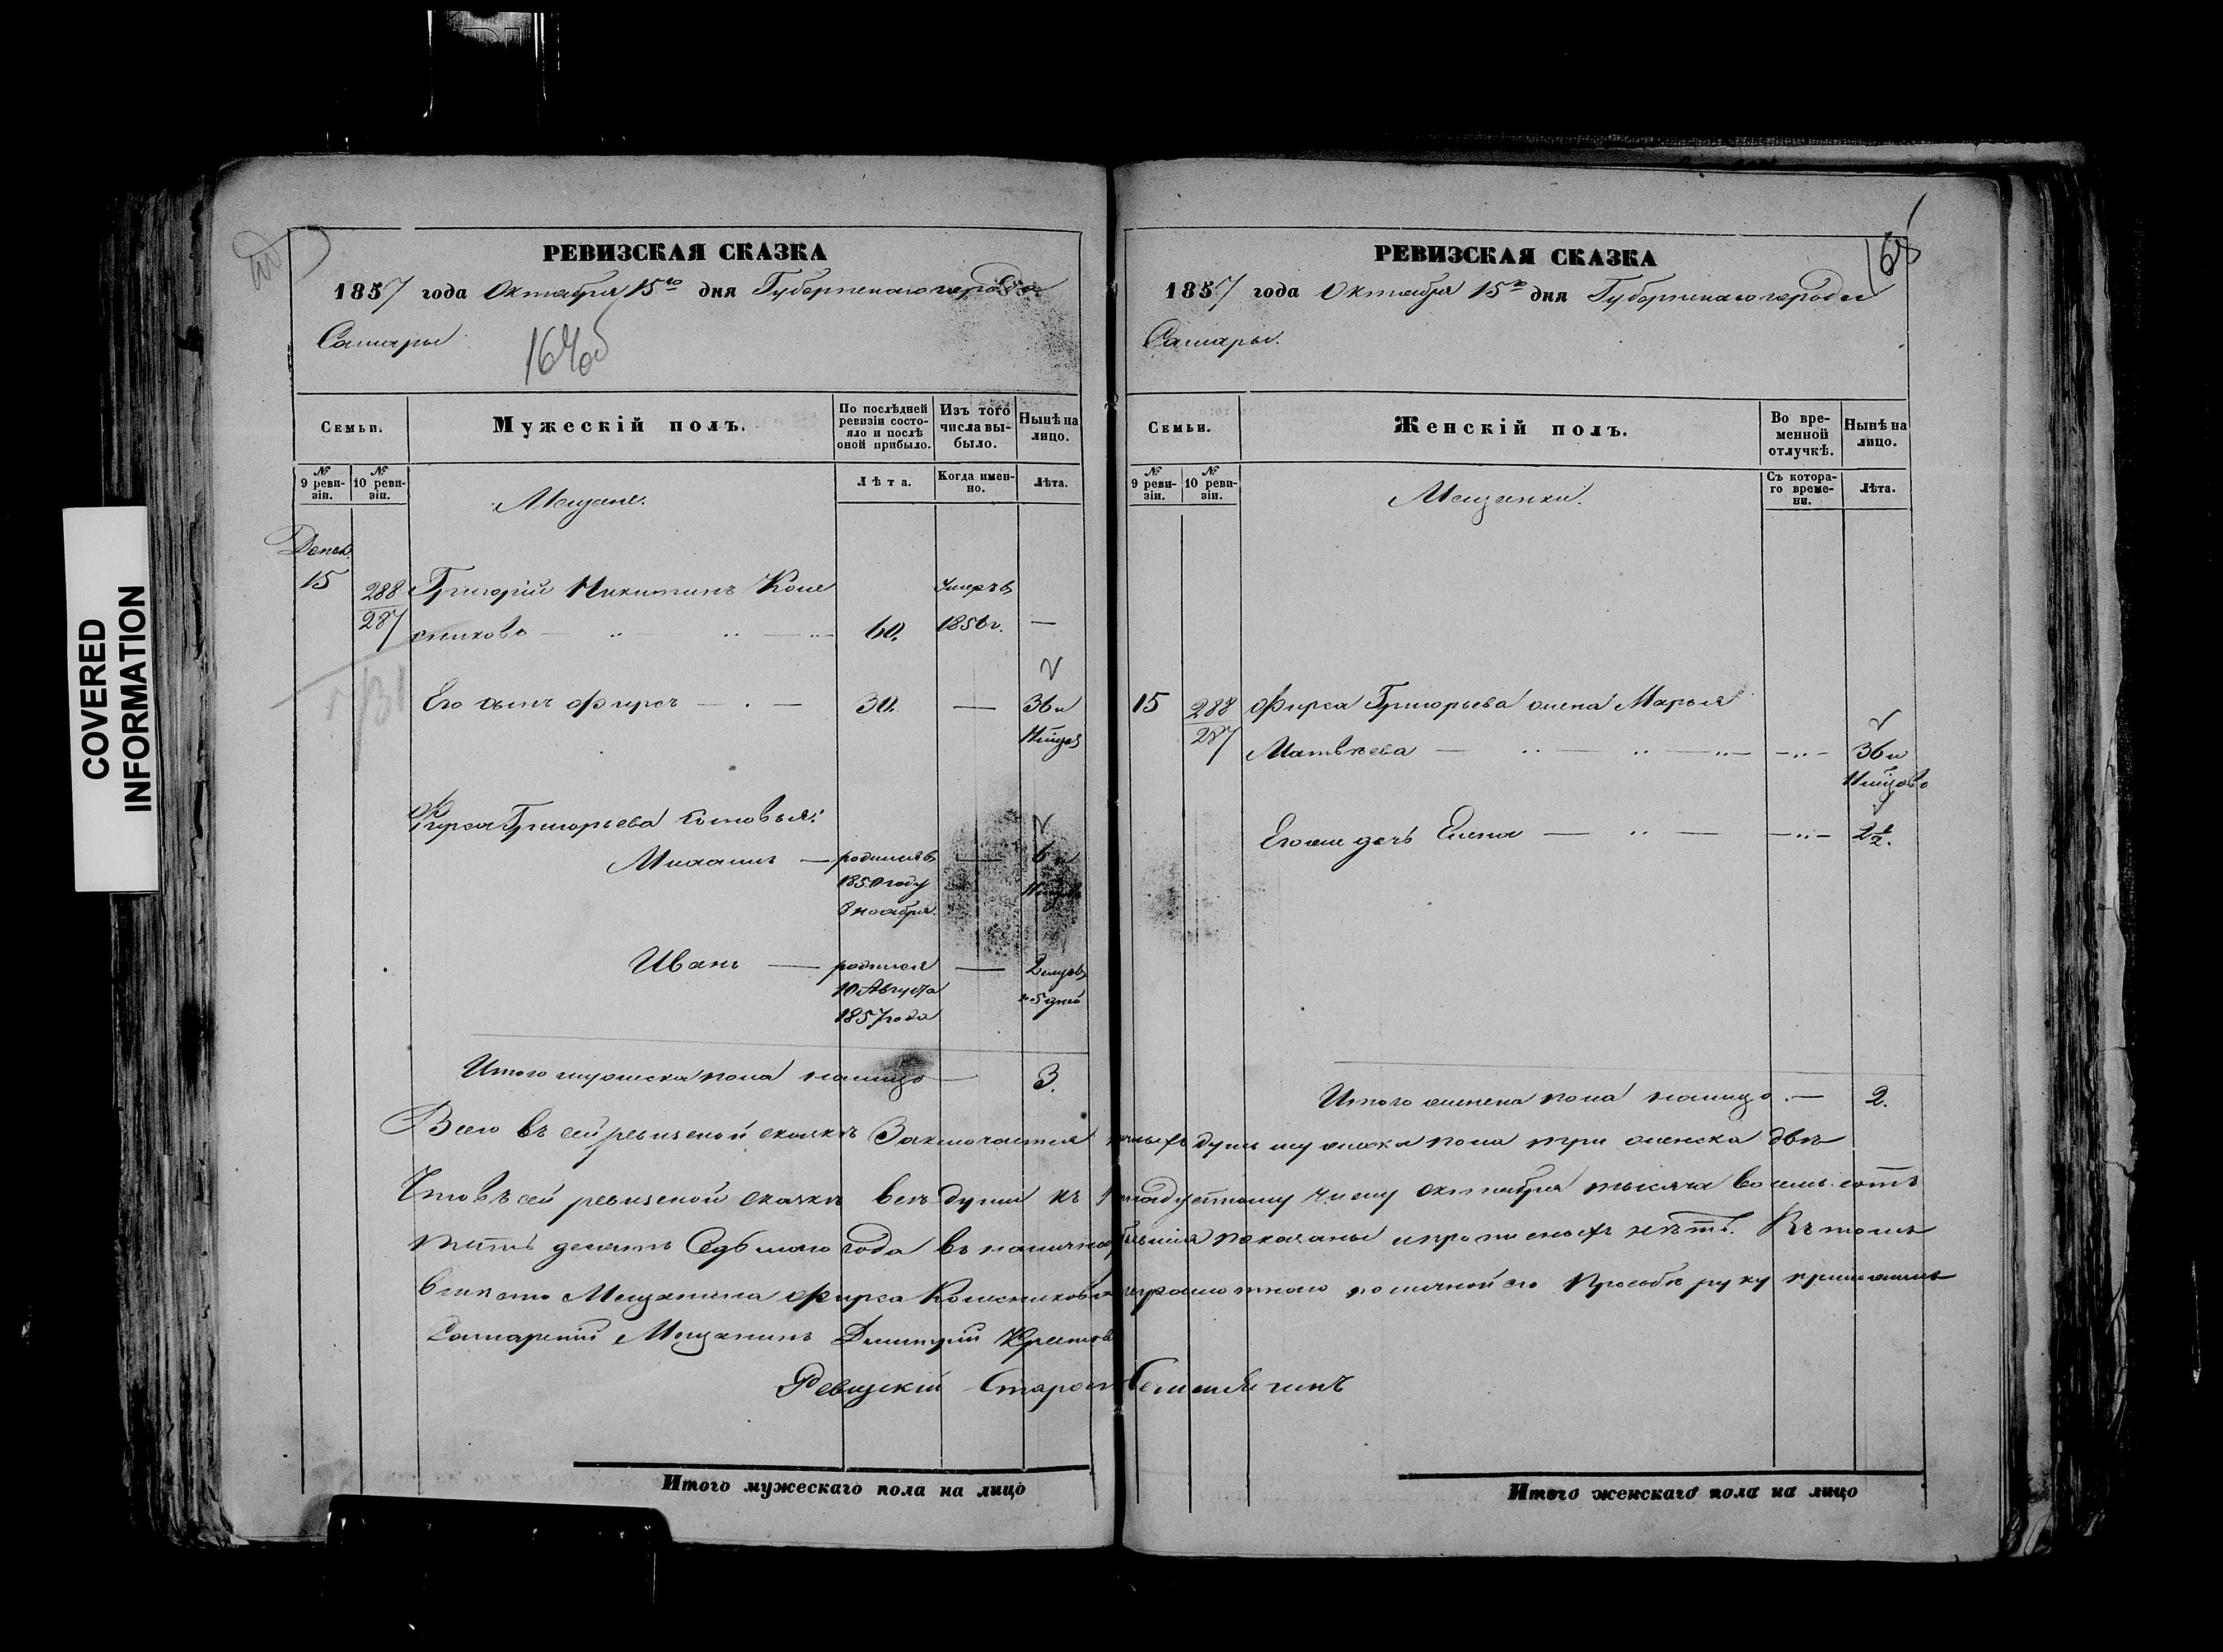 COVERED
INFORMATION
РЕВИЗСКАЯ СКАЗКА
1857 года Октября 15го дня Губернскаго города
Самары
164об
Семьи.
Мужескій полъ.
По послѣдней ревизіи состояло и послѣ оной прибыло.
Изъ того числа выбыло.
Нынѣ на лицо.
№ 9 ревизіи.
№ 10 ревизіи.
Мещане.
Лѣта.
Когда именно.
Лѣта.
Допол.
15 288 Григорій Никитинъ Коле Умеръ
287 сниковъ 60. 1856 г. —
Его сынъ Фирсъ — 30. — 36 и
11 мѣсяц
Фирса Григорьева сыновья:
Михаилъ — родился въ — 6 и
1850 году 11 мѣсяц
8 ноября.
Иванъ — родился — 2 мѣсяц
10 Августа и 5 дней
1857 года
Итого мужеска пола налицо — 3.
РЕВИЗСКАЯ СКАЗКА
165
1857 года Октября 15го дня Губернскаго города
Самары.
Семьи.
Женскій полъ.
Во временной отлучкѣ.
Нынѣ на лицо.
№ 9 ревизіи.
№ 10 ревизіи.
Мещанки.
Съ котораго времени.
Лѣта.
15 288 Фирса Григорьева жена Марья
287 Матвѣева — 36 и
11 мѣсяцовъ
Его же дочь Елена — 2 1/2.
Итого женска пола налицо. — 2.
Всего въ сей ревизской сказкѣ Заключается душъ мужеска пола три женска двѣ
Что въ сей ревизской сказкѣ всѣ души къ числу октября тысяча восемь сотъ
пять десятъ Седьмого года въ показаны и прописныхъ нѣтъ. Въ томъ
вмѣсто Мещанина Фирса Колесникова неграмотного по личной его Прозьбѣ руку приложилъ
Самарскій Мещанинъ Дмитрій
Ревизскій Старост
Итого мужескаго пола на лицо
Итого женскаго пола на лицо